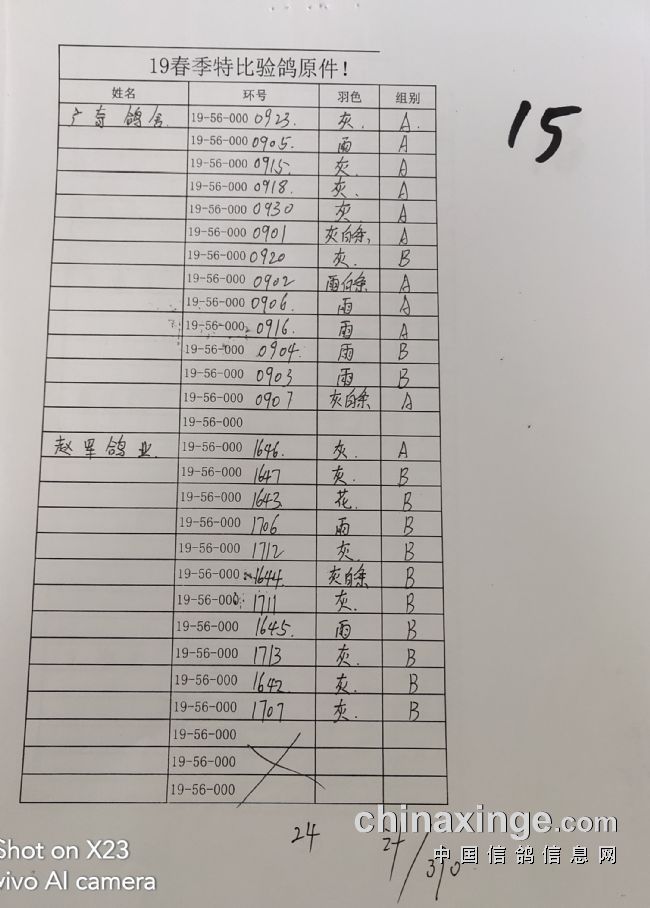 19春季特比验鸽原件!
姓名 环号 羽色 组别
15
鸽舍. 19-56-000 0923. 灰. A.
19-56-000 0905. 雨 A
19-56-000 0915. 灰. A
19-56-000 0918. 灰. A
19-56-000 0930 灰. A
19-56-000 0901 灰白条, A
19-56-000 0920 灰. B
19-56-000 0902 雨白条 A
19-56-000 0906. 雨 A
19-56-000 0916. 雨 A
19-56-000 0904. 雨 B
19-56-000 0903 雨 B
19-56-000 0907 灰白条 A
19-56-000
赵军鸽业. 19-56-000 1646. 灰. A
19-56-000 1647 灰. B
19-56-000 1643 花. B
19-56-000 1706 雨 B
19-56-000 1712 灰. B
19-56-000 1644 灰白条 B
19-56-000 1711 灰. B
19-56-000 1645. 雨 B
19-56-000 1713 灰. B
19-56-000 1642 灰. B
19-56-000 1707 灰. B
19-56-000
19-56-000
19-56-000
24 24/310
chinaxinge.com
中国信鸽信息网
Shot on X23
vivo AI camera